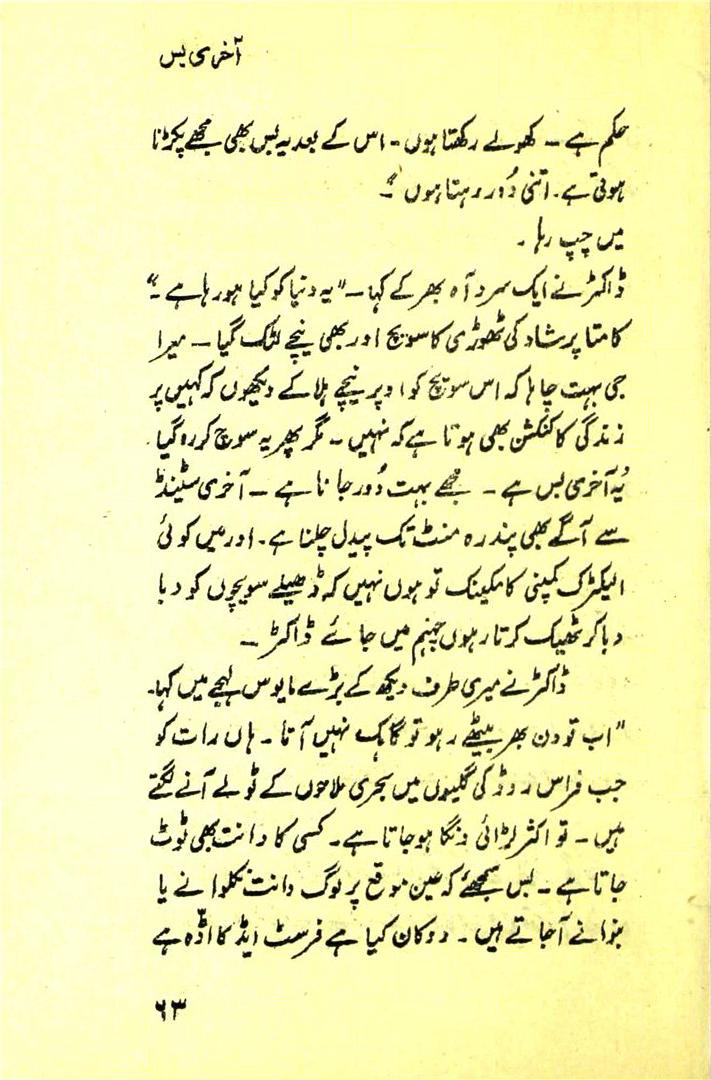 آخری بس
حکم ہے ۔ کھولے رکھتا ہوں ۔ اس کے بعد یہ بس بھی مجھے پکڑنا
ہوتی ہے ۔ اتنی دُور رہتا ہوں "۔
میں چپ رہا ۔
ڈاکٹر نے ایک سرد آہ بھر کے کہا ۔ " یہ دنیا کو کیا ہو رہا ہے ۔"
کامتا پرشاد کی ٹھوڑی کا سویچ اور بھی نیچے لٹک گیا ۔ میرا
جی بہت چاہا کہ اس سویچ کو اوپر نیچے ہلا کے دیکھوں کہ کہیں پر
زندگی کا کنکشن بھی ہوتا ہے کہ نہیں ۔ مگر پھر یہ سوچ کر رہ گیا ۔
یُہ آخری بس ہے ۔ مجھے بہت دُور جانا ہے ۔ آخری سٹینڈ
سے آگے بھی پندرہ منٹ تک پیدل چلنا ہے ۔ اور میں کوئی
الیکٹرک کمپنی کا مکینک تو ہوں نہیں کہ ڈھیلے سویچوں کو دبا
دبا کر ٹھیک کرتا رہوں جہنم میں جائے ڈاکٹر ۔
ڈاکٹر نے میری طرف دیکھ کے بڑے مایوس لہجے میں کہا ۔
" اب تو دن بھر بیٹھے رہو تو گاہک نہیں آتا ۔ ہاں رات کو
جب فراس روڈ کی گلیوں میں بحری ملاحوں کے ٹولے آنے لگتے
ہیں ۔ تو اکثر لڑائی دنگا ہو جاتا ہے ۔ کسی کا دانت بھی ٹوٹ
جاتا ہے ۔ بس سمجھئے کہ عین موقع پر لوگ دانت نکلوانے یا
بنوانے آ جاتے ہیں ۔ دوکان کیا ہے فرسٹ ایڈ کا اڈّہ ہے
۶۳